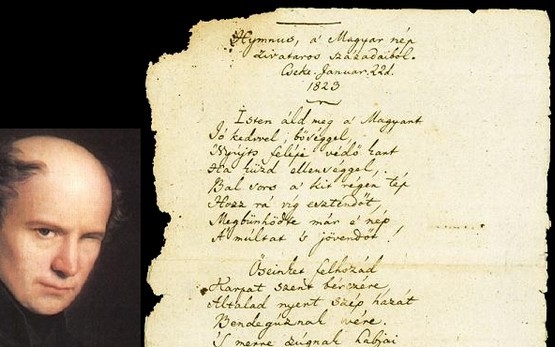 Hymnus, a' Magyar nép
zivataros századaiból.
Cseke Januar. 22d.
1823
Isten áld meg a' Magyart
Jó kedvvel, bőséggel,
Nyújts feléje védő kart
Ha küzd ellenséggel,
Bal sors a' kit régen tép
Hozz rá víg esztendőt,
Megbűnhödte már e' nép
A' múltat 's jövendőt!
Őseinket felhozád
Kárpát szent bérczére,
Általad nyert szép hazát
Bendegúznak vére.
'S merre zúgnak habjai